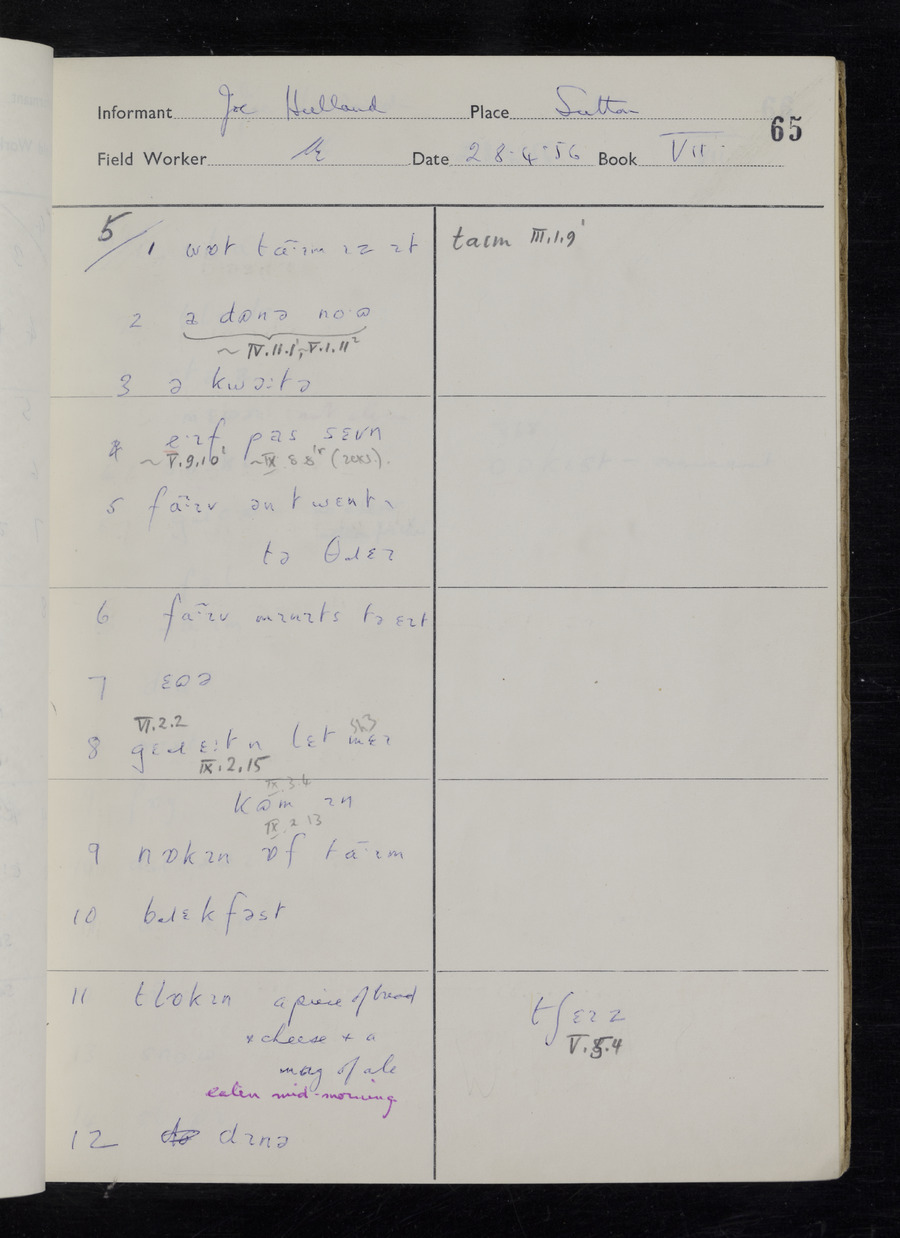 Informant Joe Hulland Place Sutton
65
Field Worker Date 28.4.56 Book VII
5/ 1 wɒt tāːɪm ɪz ɪt
taɪm III.1.9¹
2 ə dɷnə noˑɷ
~ IV.11.1¹, ~V.1.11²
3 ə kwəːtə
4 ɛːɪf pas sɛvn
~ V.9.10¹ ~IX.8.8
5 fāːɪv ən twentɪ
tə θɹɛɪ
6 fāːɪv mɪnɪts tə ɛɪt
7 ɛɷə
VI.2.2
8 gɛɹ ɛːt n lɛt mɛɪ
IX.2.15
IX.3.4
kɷm ɪn
IX.2 13
9 nɒkɪn ɒf tāːɪm
10 bɹɛkfəst
11 tlɒkɪn a piece of bread
+ cheese + a
mug of ale
eaten mid-morning
tʃɛɪz
V.5.4
12 dɪnə